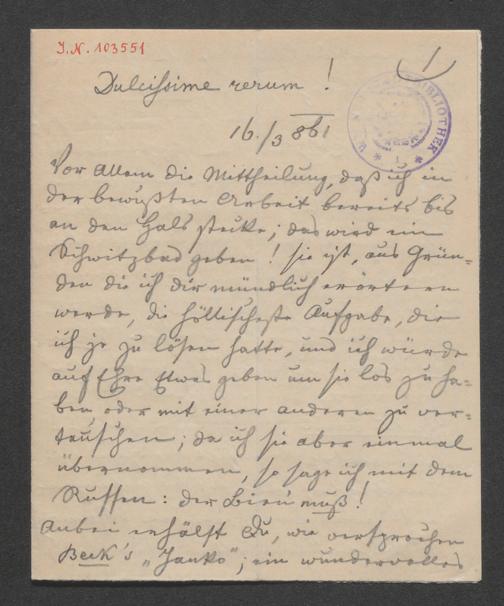 J.N. 103551
1
Dulcissime rerum!
16./3 861
BIBLIOTHEK
Vor Allem die Mittheilung, daß ich in
der bewußten Arbeit bereits bis
an den Hals stecke; das wird ein
Schwitzbad geben! sie ist, aus Grün-
den die ich dir mündlich erörtern
werde, die höllischeste Aufgabe, die
ich je zu lösen hatte, und ich würde
auf Ehre Etwas geben um sie los zu ha-
ben oder mit einer anderen zu ver-
tauschen; da ich sie aber einmal
übernommen, so sage ich mit dem
Russen: der muß!
Anbei erhälst Du, wie versprochen
Beck's „Janko"; ein wundervolles